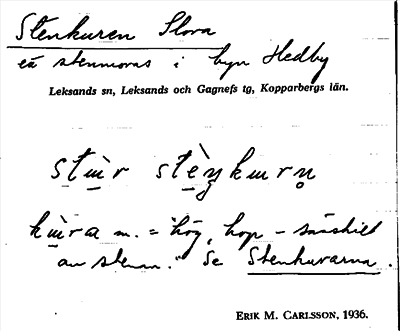 Stenkuren Stora
stenmoras i byn Hedby
Leksands sn, Leksands och Gagnefs tg, Kopparbergs län.
stɯ̀r stèn̥kɯrn̥
kɯ̀ra m. = "hög, hop - särskilt
av stenar." Se Stenkurarna.
ERIK M. CARLSSON, 1936.